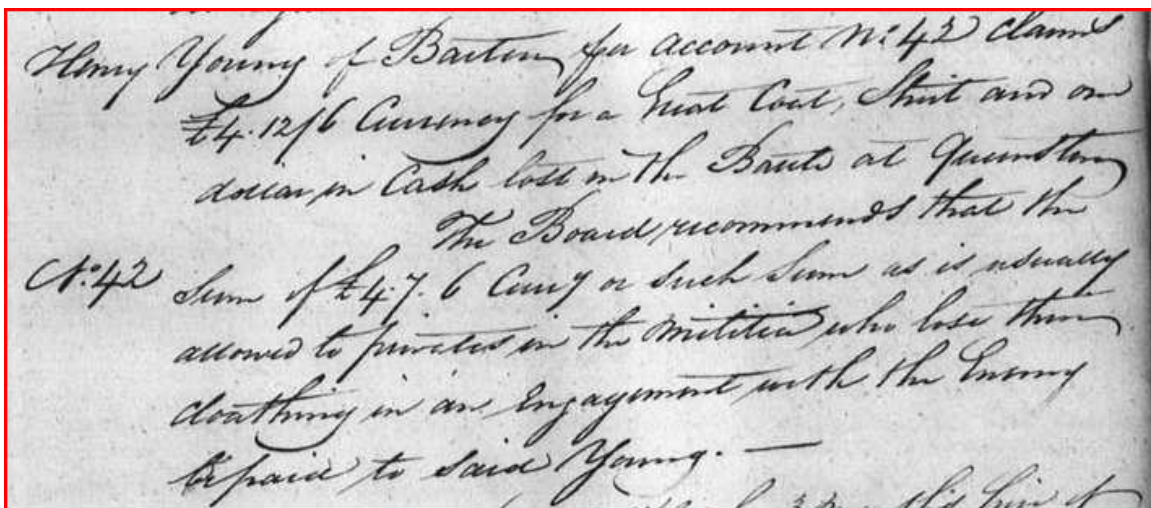 Henry Young of Barton per account No: 42 claims
£4.12/6 Currency for a Great Coat, Shirt and one
dollar in Cash lost in the Battle at Queenston
The Board recommends that the
No. 42 Sum of £4.7.6 Curr'y or such Sum as is usually
allowed to privates in the Militia who lose their
cloathing in an Engagement with the Enemy
be paid to said Young. —